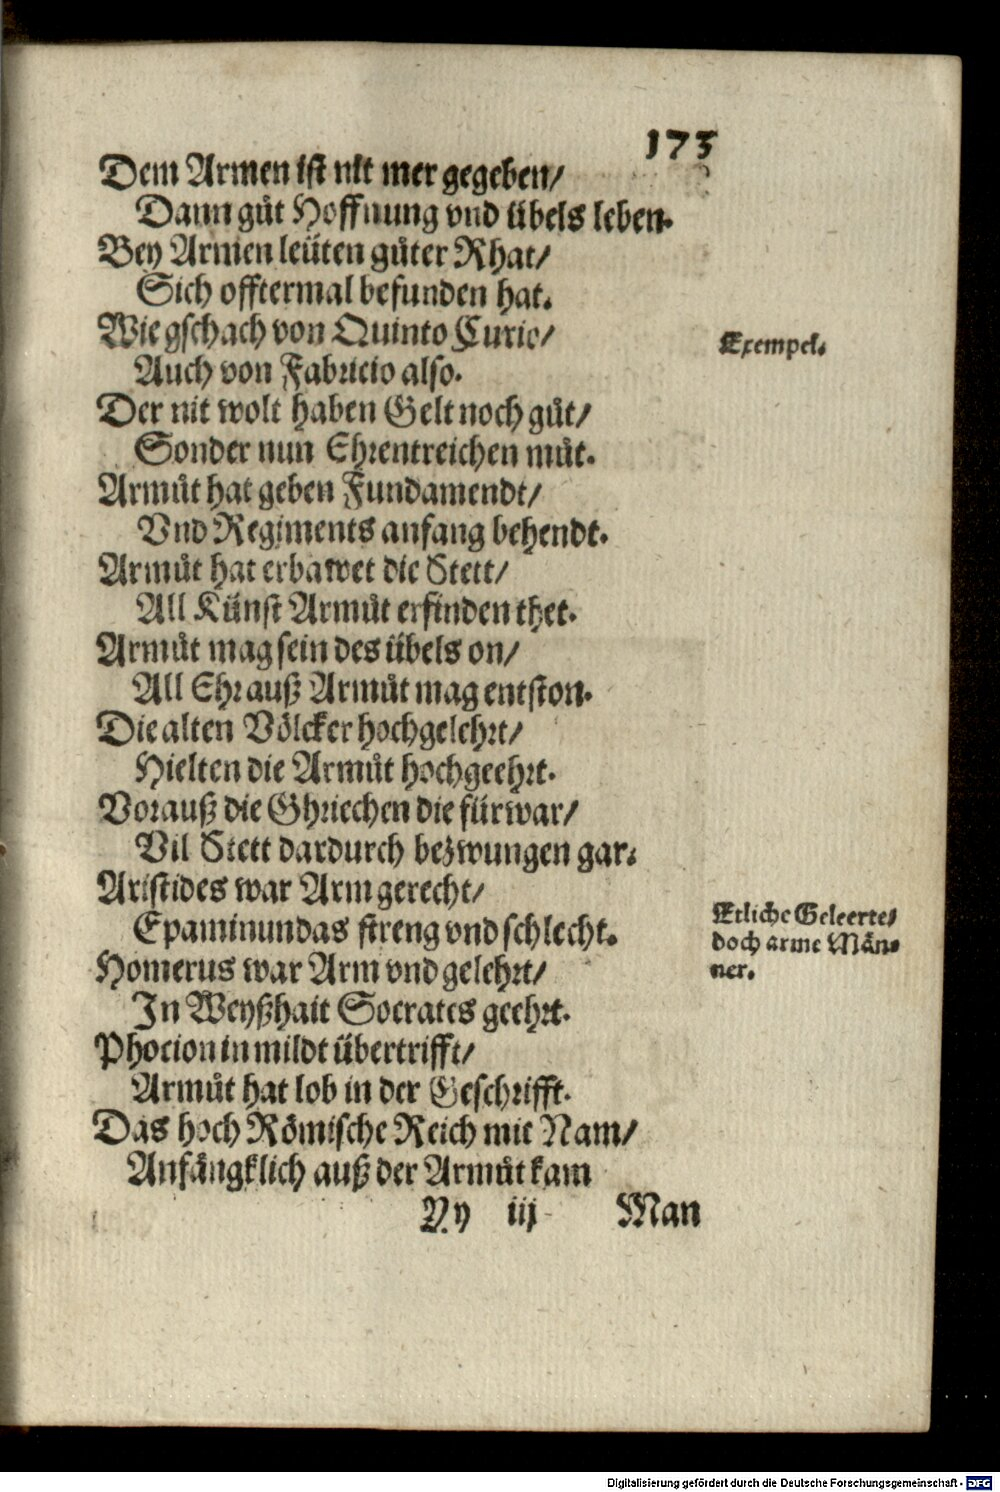 173
Dem Armen ist nit mer gegeben/
Dann gůt Hoffnung vnd übels leben.
Bey Armen leüten gůter Rhat/
Sich offtermal befunden hat.
Wie gschach von Quinto Curio/
Exempel.
Auch von Fabricio also.
Der nit wolt haben Gelt noch gůt/
Sonder nun Ehrentreichen můt.
Armůt hat geben Fundamendt/
Vnd Regiments anfang behendt.
Armůt hat erbawet die Stett/
All Künst Armůt erfinden thet.
Armůt mag sein des übels on/
All Ehr auß Armůt mag entston.
Die alten Völcker hochgelehrt/
Hielten die Armůt hochgeehrt.
Vorauß die Ghriechen die fürwar/
Vil Stett dardurch bezwungen gar.
Aristides war Arm gerecht/
Epaminundas streng vnd schlecht.
Etliche Geleerte/
doch arme Män-
ner.
Homerus war Arm vnd gelehrt/
In Weyßhait Socrates geehrt.
Phocion in mildt übertrifft/
Armůt hat lob in der Geschrifft.
Das hoch Römische Reich mit Nam/
Anfängklich auß der Armůt kam
Yy iij Man
Digitalisierung gefördert durch die Deutsche Forschungsgemeinschaft - DFG